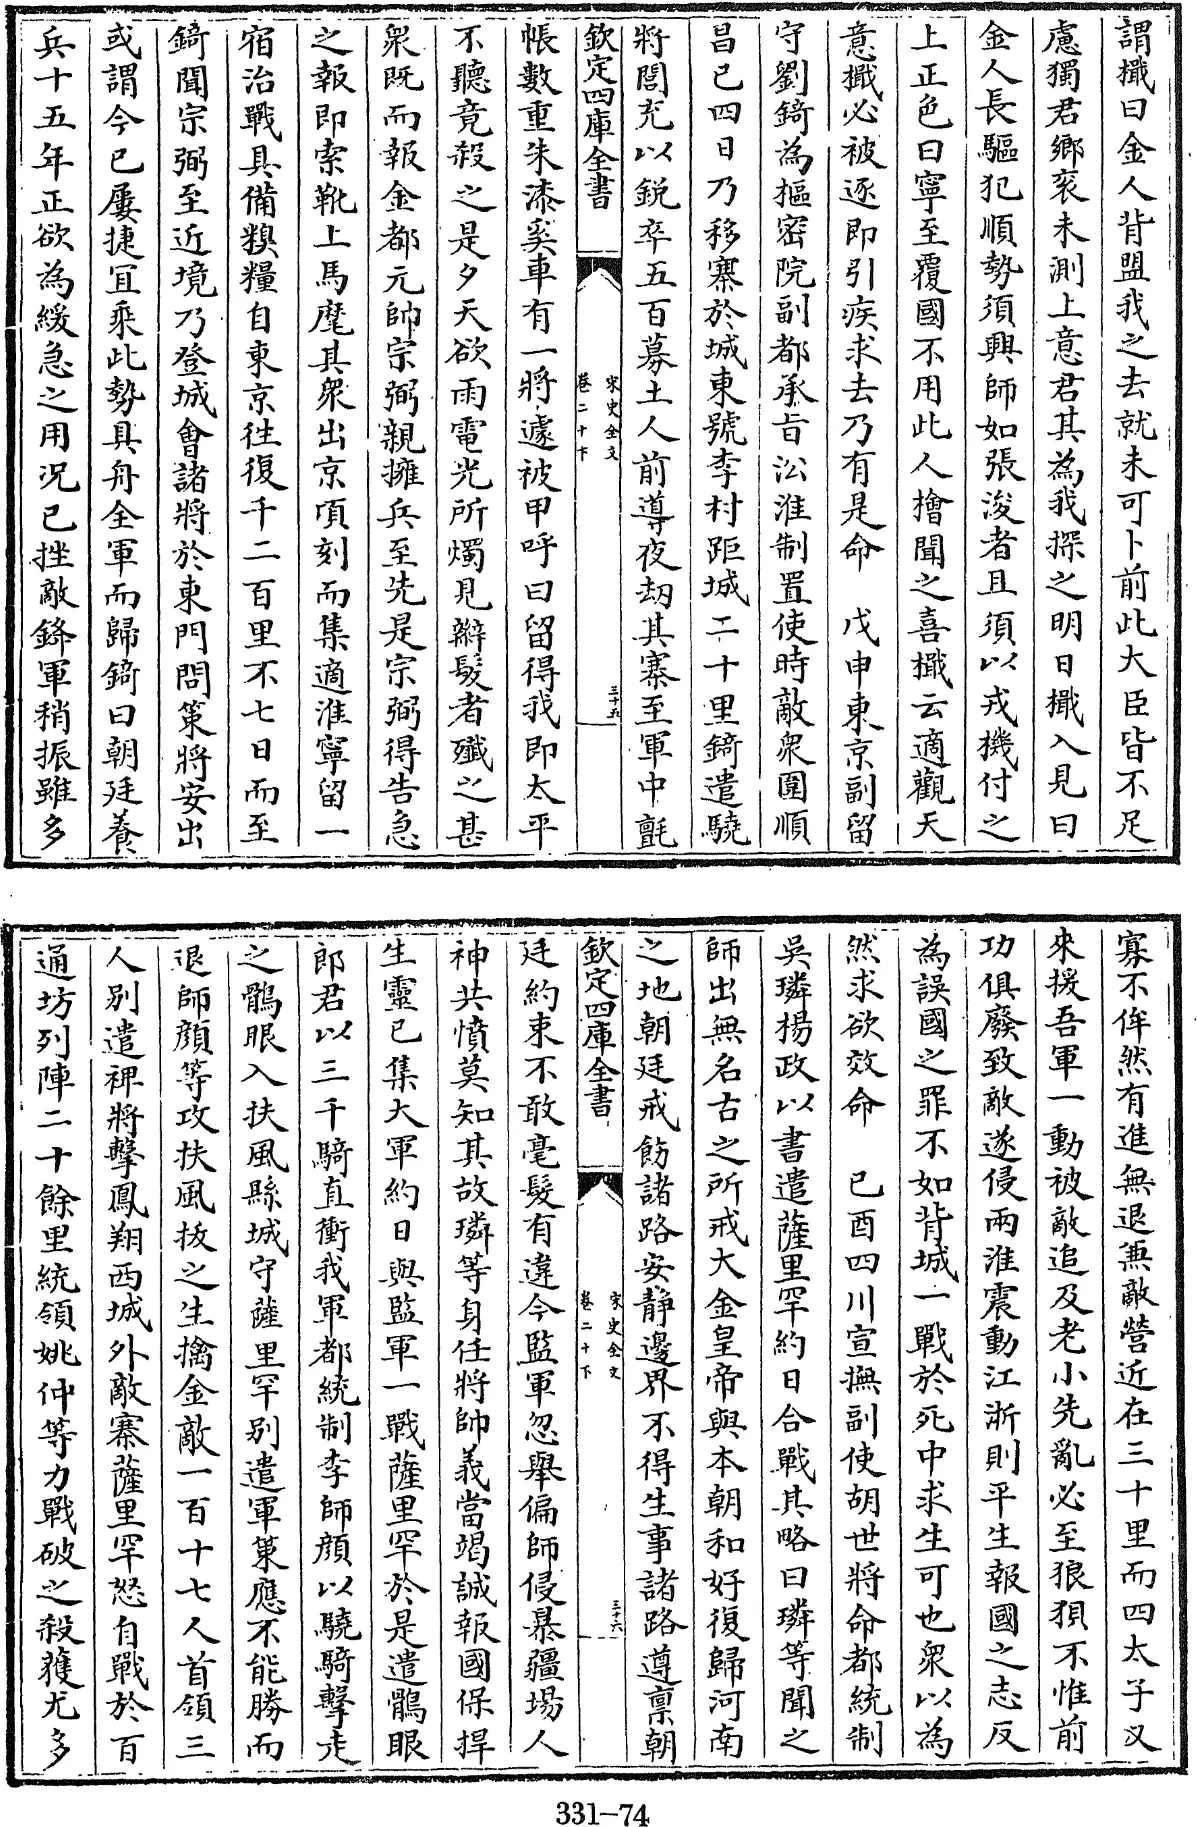 謂檝曰金人背盟我之去就未可卜前此大臣皆不足
慮獨君鄉衮未測上意君其為我探之明日檝入見曰
金人長驅犯順勢須興師如張浚者且須以戎機付之
上正色曰寧至覆國不用此人檜聞之喜檝云適觀天
意檝必被逐即引疾求去乃有是命　戊申東京副留
守劉錡為樞密院副都承旨沿淮制置使時敵衆圍順
昌已四日乃移寨於城東號李村距城二十里錡遣驍
將閻充以銳卒五百募土人前導夜刧其寨至軍中氊
欽定四庫全書
宋史全文
卷二十下
三十五
帳數重朱漆奚車有一將遽被甲呼曰留得我即太平
不聽竟殺之是夕天欲雨電光所燭見辮髮者殲之甚
衆既而報金都元帥宗弼親擁兵至先是宗弼得告急
之報即索靴上馬麾其衆出京頃刻而集適淮寧留一
宿治戰具備糗糧自東京徃復千二百里不七日而至
錡聞宗弼至近境乃登城會諸將於東門問策將安出
或謂今已屢捷宜乘此勢具舟全軍而歸錡曰朝廷養
兵十五年正欲為緩急之用况已挫敵鋒軍稍振雖多
寡不侔然有進無退兼敵營近在三十里而四太子又
來援吾軍一動被敵追及老小先亂必至狼狽不惟前
功俱廢致敵遂侵兩淮震動江浙則平生報國之志反
為誤國之罪不如背城一戰於死中求生可也衆以為
然求欲效命　己酉四川宣撫副使胡世將命都統制
吳璘楊政以書遣薩里罕約日合戰其略曰璘等聞之
師出無名古之所戒大金皇帝與本朝和好復歸河南
之地朝廷戒飭諸路安静邊界不得生事諸路遵禀朝
欽定四庫全書
宋史全文
卷二十下
三十六
廷約束不敢毫髮有違今監軍忽舉偏師侵暴疆埸人
神共憤莫知其故璘等身任將帥義當竭誠報國保捍
生靈已集大軍約日與監軍一戰薩里罕於是遣鶻眼
郎君以三千騎直衝我軍都統制李師顔以驍騎擊走
之鶻眼入扶風縣城守薩里罕别遣軍策應不能勝而
退師顔等攻扶風拔之生擒金敵一百十七人首領三
人别遣裨將擊鳳翔西城外敵寨薩里罕怒自戰於百
通坊列陣二十餘里統領姚仲等力戰破之殺獲尤多
331-74